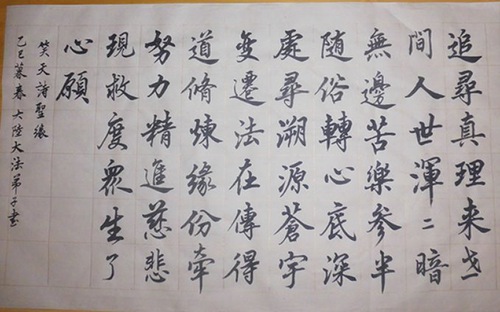 追尋真理来世
間人世渾〻暗
無邊苦樂参半
随俗轉心底深
處尋溯源蒼宇
变遷法在傳得
道脩煉緣份牽
努力精進慈悲
現救度眾生了
心願
笑天詩聖緣
乙巳暮春大陸大法弟子書